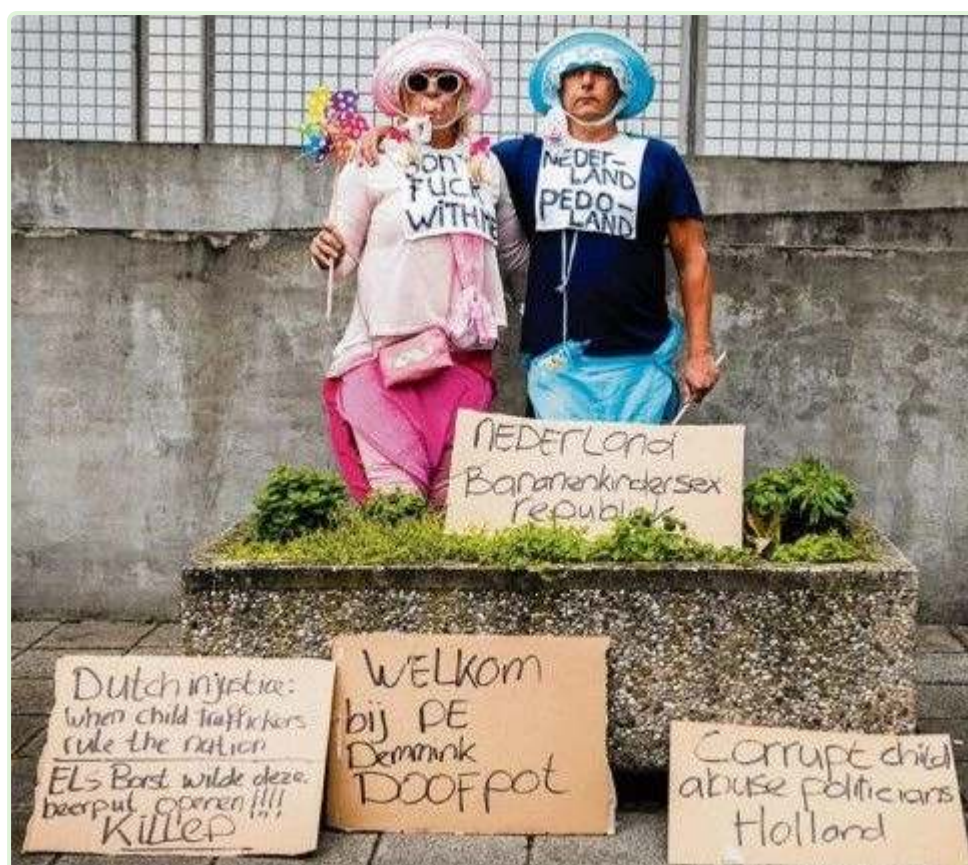 DON'T
FUCK
WITH ME
NEDER-
LAND
PEDO-
LAND
NEDERLAND
Bananenkindersex
republiek
Dutch injustice:
when child traffickers
rule the nation
ELs Borst wilde deze
beerput openen!!!!
Killed
WELKOM
bij DE
Demmink
DOOFpot
Corrupt child
abuse politicians
Holland